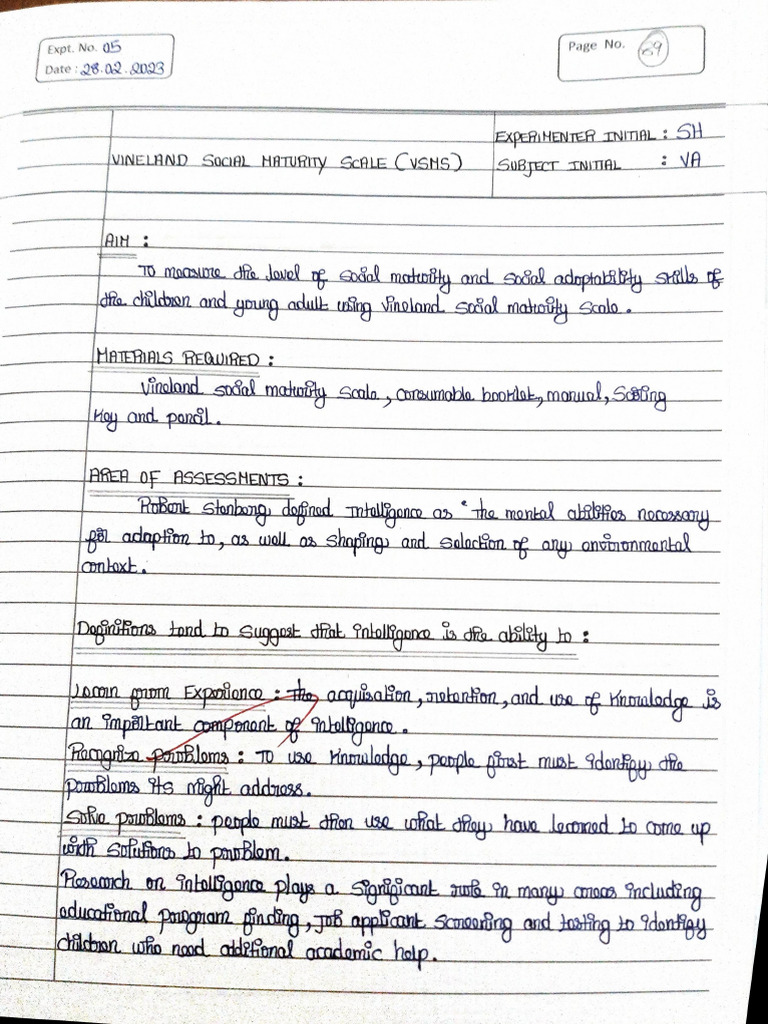 Expt. No. 05
Date : 28.02.2023
Page No. 69
EXPERIMENTER INITIAL : SH
VINELAND SOCIAL MATURITY SCALE (VSMS)
SUBJECT INITIAL : VA
AIM :
To measure the level of social maturity and social adaptability skills of
the children and young adult using Vineland social maturity scale.
MATERIALS REQUIRED :
Vineland social maturity scale, consumable booklet, manual, Scoring
Key and pencil.
AREA OF ASSESSMENTS :
Robert Stenberg defined Intelligence as "the mental abilities necessary
for adaption to, as well as shaping and selection of any environmental
context.
Definitions tend to suggest that intelligence is the ability to :
Learn from Experience : The acquisation, retention, and use of Knowledge is
an important component of intelligence.
Recognize problems : To use Knowledge, people first must identify the
problems its might address.
Solve problems : people must then use what they have learned to come up
with solutions to problem.
Research on intelligence plays a significant role in many areas including
educational program finding, job applicant screening and testing to identify
children who need additional academic help.